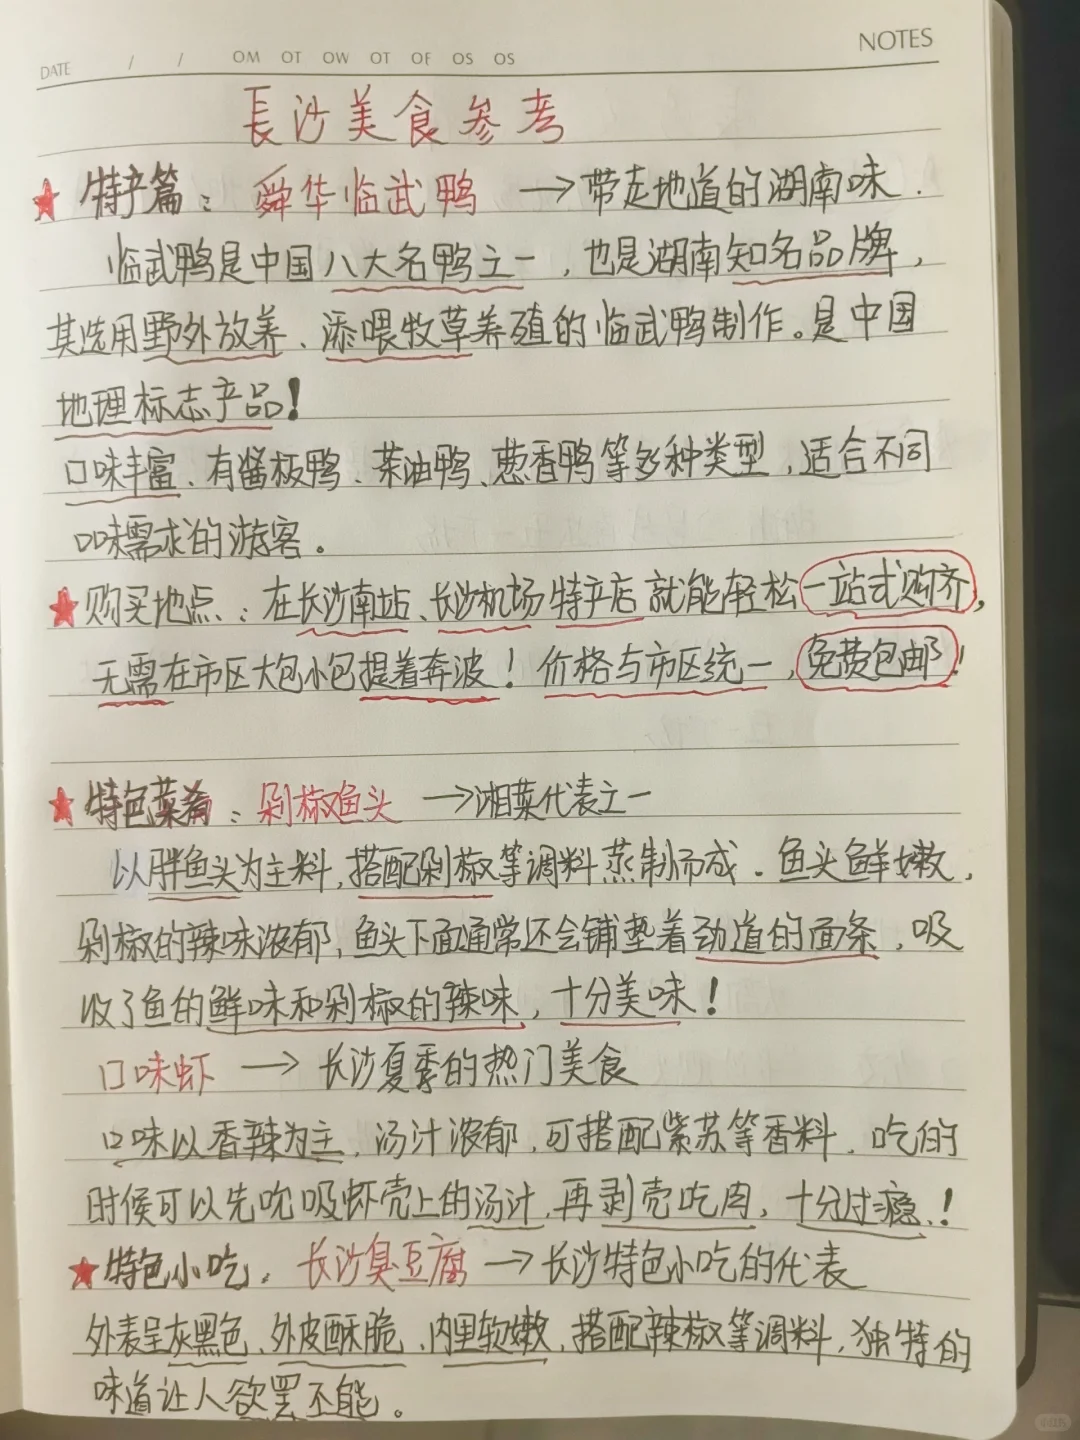 DATE / / OM OT OW OT OF OS OS NOTES
長沙美食参考
★ 特产篇：舜华临武鸭 →带走地道的湖南味.
临武鸭是中国八大名鸭之一，也是湖南知名品牌，
其选用野外放养、添喂牧草养殖的临武鸭制作。是中国
地理标志产品！
口味丰富、有酱板鸭、茶油鸭、葱香鸭等多种类型，适合不同
口味需求的游客。
★购买地点：在长沙南站、长沙机场特产店就能轻松一站式购齐，
无需在市区大包小包提着奔波！价格与市区统一，免费包邮！
★特色菜肴：剁椒鱼头 →湘菜代表之一
以胖鱼头为主料，搭配剁椒等调料蒸制而成.鱼头鲜嫩，
剁椒的辣味浓郁，鱼头下面通常还会铺垫着劲道的面条，吸
收了鱼的鲜味和剁椒的辣味，十分美味！
口味虾 → 长沙夏季的热门美食
口味以香辣为主，汤汁浓郁，可搭配紫苏等香料.吃的
时候可以先吮吸虾壳上的汤汁，再剥壳吃肉，十分过瘾！
★特色小吃.长沙臭豆腐→长沙特色小吃的代表
外表呈灰黑色、外皮酥脆、内里软嫩，搭配辣椒等调料，独特的
味道让人欲罢不能。
小红书